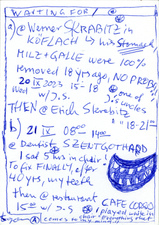 WAITING FOR
a) @ Werner SKRABITZ in
KÖFLACH his stomach,
MILZ + GALLE were 100%
removed 18 years ago, NO PROBS
20 IX 2023 15 - 18 one of
Wed w/ D.S. D.S. uncles
THEN @ Erich Skrabitz
18-21
b) 21 IX 08°° 14°°
@ Dentist SZENTGOTTHARD
I sad 5 hrs in chair!
To fix FINALLY, after
40 yrs, my teeth
then @ restaurant CAFE CORSO
15°° w/ D.S. I played while in
chair "everything that
comes to my mind"